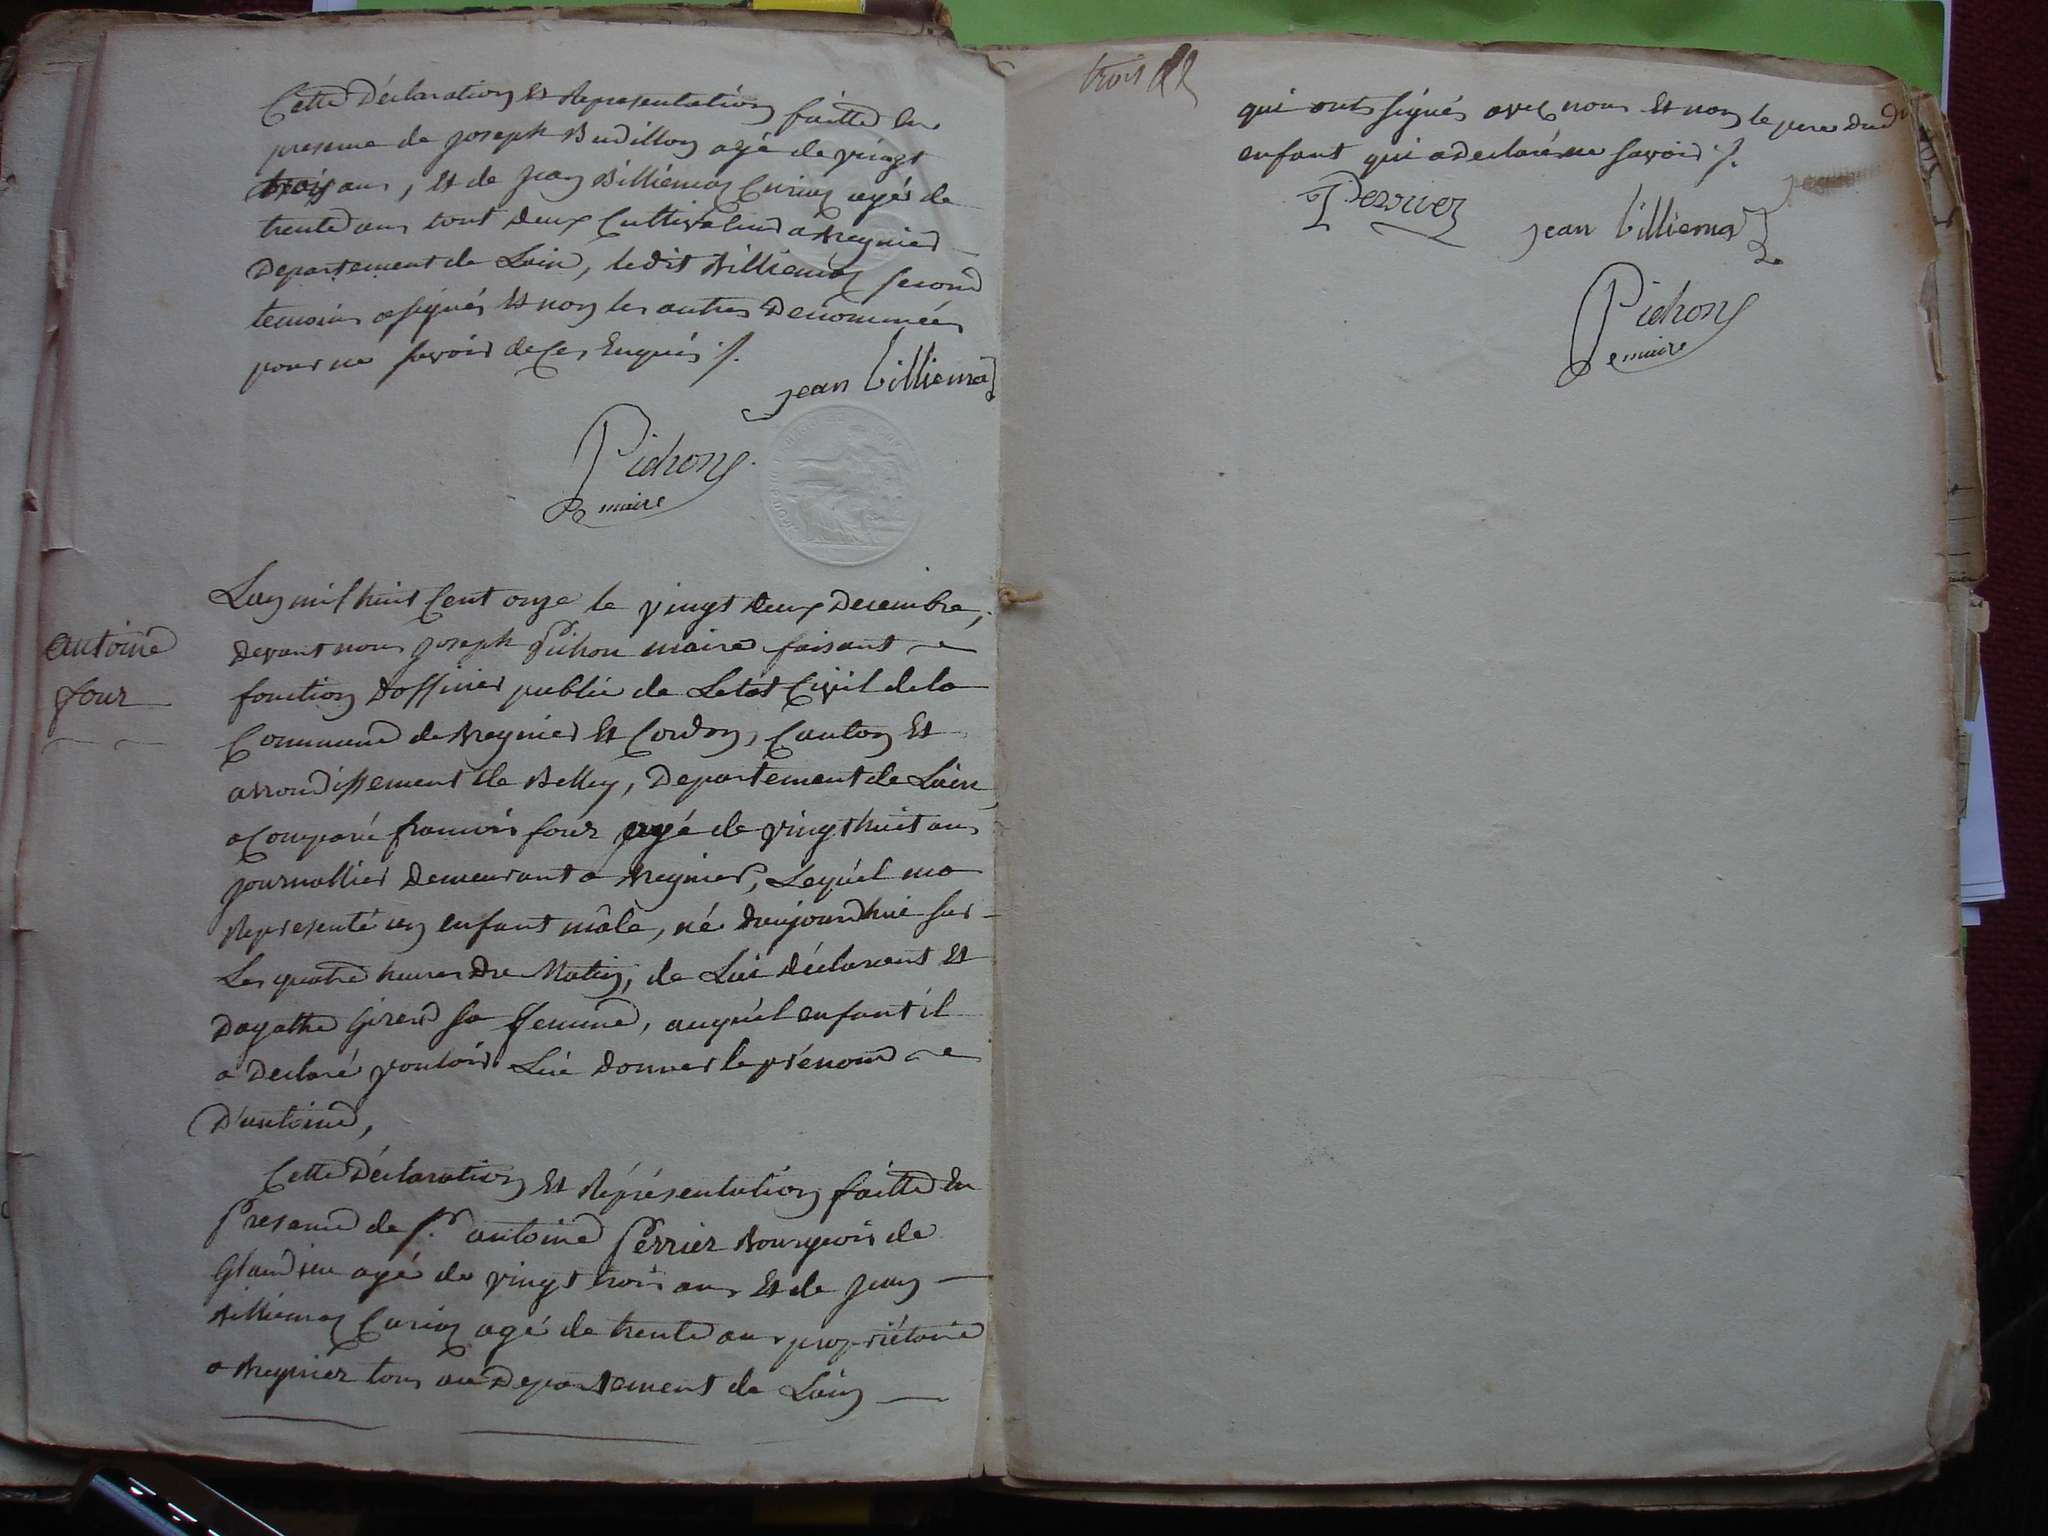 Cette Déclaration Et Représentation faitte En
presence de joseph Budillon agé de vingt
trois ans, Et de jean Billiemaz Curiaz agés de
trente ans tout deux Cultivateurs a Bregnier
Departement de Lain, ledit Billiemaz second
temoins a signés Et non les autres Denommées
pour ne savoir de Ces Enquis ./.
jean billiemaz
Pichon
maire
antoine
four
Lan mil huit Cent onze le vingt deux Decembre,
devant nous joseph Pichon maire faisant
fonction Dofficier public de Letat Civil de la
Commune de Bregnier Et Cordon, Canton Et
arrondissement de Belley, Departement de Lain
a Comparu francois four agé de vingt huit ans
journallier Demeurant a Bregnier, Lequel ma
Representé un enfant mâle, né daujourdhui sur
Les quatre heures Du Matin, de Lui déclarant Et
Dagathe Girerd sa femme, auquel enfant il
a Declaré vouloir Lui donner le prénom
D'antoine,
Cette Déclaration Et Réprésentation faitte En
Presence de Sr. antoine Perrier Bourgeois de
Glandieu agé de vingt trois ans Et de jean
Billiemaz Curiaz agé de trente ans propriétaire
a Bregnier tous au Departement de Lain
trois
qui ont signés avec nous Et non le pere Dud
enfant qui a declaré ne savoir ./.
Perrier
jean billiemaz
Pichon
maire